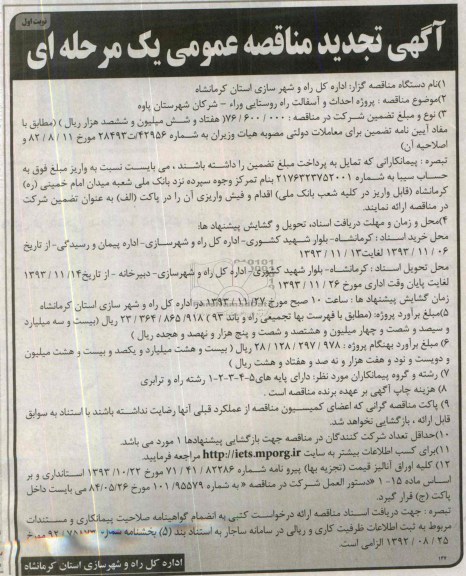 نوبت اول
آگهی تجدید مناقصه عمومی یک مرحله ای
۱)نام دستگاه مناقصه گزار: اداره کل راه و شهر سازی استان کرمانشاه
۲)موضوع مناقصه : پروژه احداث و آسفالت راه روستایی وراء - شرکان شهرستان پاوه
۳) نوع و مبلغ تضمین شرکت در مناقصه : ۷۶/۶۰۰/۰۰۰( هفتاد و شش میلیون و ششصد هزار ریال ) (مطابق با
مفاد آیین نامه تضمین برای معاملات دولتی مصوبه هیات وزیران به شماره ۴۲۹۵۶/ت۲۸۴۹۳ مورخ ۱۱ / ۸ / ۸۲ و
اصلاحیه آن)
تبصره : پیمانکارانی که تمایل به پرداخت مبلغ تضمین را داشته باشند ، می بایست نسبت به واریز مبلغ فوق به
حساب سیبا به شماره ۲۱۷۶۲۳۷۵۲۰۰۱ بنام تمرکز وجوه سپرده نزد بانک ملی شعبه میدان امام خمینی (ره)
کرمانشاه (قابل واریز در کلیه شعب بانک ملی) اقدام و فیش واریزی آن را در پاکت (الف) به عنوان تضمین شرکت
در مناقصه ارائه نمایند.
۴)محل و زمان و مهلت دریافت اسناد، تحویل و گشایش پیشنهاد ها:
محل خرید اسناد : کرمانشاه- بلوار شهید کشوری- اداره کل راه و شهرسازی- اداره پیمان و رسیدگی- از تاریخ
۰۶ / ۱۱ / ۱۳۹۳ لغایت ۱۳ / ۱۱ / ۱۳۹۳
محل تحویل اسناد : کرمانشاه- بلوار شهید کشوری- اداره کل راه و شهرسازی- دبیرخانه - از تاریخ ۱۴ / ۱۱ / ۱۳۹۳
لغایت پایان وقت اداری مورخ ۲۶ / ۱۱ / ۱۳۹۳
زمان گشایش پیشنهاد ها : ساعت ۱۰ صبح مورخ ۲۷ / ۱۱ / ۱۳۹۳ در: اداره کل راه و شهر سازی استان کرمانشاه
۵)مبلغ برآورد پروژه: (مطابق با فهرست بها تجمیعی راه و باند ۹۳ ) ۹۱۸ / ۸۶۵ / ۳۶۴ / ۲۳ ریال (بیست و سه میلیارد
و سیصد و شصت و چهار میلیون و هشتصد و شصت و پنج هزار و نهصد و هجده ریال )
۶) مبلغ برآورد بهنگام پروژه : ۹۷۸ / ۲۹۷ / ۱۲۸ / ۲۸ ریال ( بیست و هشت میلیارد و یکصد و بیست و هشت میلیون
و دویست و نود و هفت هزار و نه صد و هفتاد و هشت ریال )
۷) رشته و گروه پیمانکاران مورد نظر: دارای پایه های ۵-۴-۳-۲-۱ رشته راه و ترابری
۸) هزینه چاپ آگهی بر عهده برنده مناقصه است .
۹) پاکت مناقصه گرانی که اعضای کمیسیون مناقصه از عملکرد قبلی آنها رضایت نداشته باشند با استناد به سوابق
قابل ارائه ، بازگشایی نخواهد شد.
۱۰)حداقل تعداد شرکت کنندگان در مناقصه جهت بازگشایی پیشنهادها ۱ مورد می باشد.
۱۱)برای کسب اطلاعات بیشتر به سایت http://iets.mporg.ir مراجعه فرمایید.
۱۲) کلیه اوراق آنالیز قیمت (تجزیه بها) پیرو نامه شماره ۸۲۲۸۶ / ۴۱ / ۷۱ مورخ ۲۲ / ۱۰ / ۱۳۹۳ استانداری و بر
اساس ماده ۱۵- ۱ «دستور العمل شرکت در مناقصه » به شماره ۹۵۵۷۹ / ۱۰۱ مورخ ۸۴/۰۵/۲۶ می بایست داخل
پاکت (ج) قرار گیرد.
تبصره : جهت دریافت اسناد مناقصه ارائه درخواست کتبی به انضمام گواهینامه صلاحیت پیمانکاری و مستندات
مربوط به ثبت اطلاعات ظرفیت کاری و ریالی در سامانه ساجار به استناد بند (۵) بخشنامه شماره / ۹۲ مورخ
۲۵ / ۰۸ / ۱۳۹۲ الزامی است.
اداره کل راه و شهرسازی استان کرمانشاه